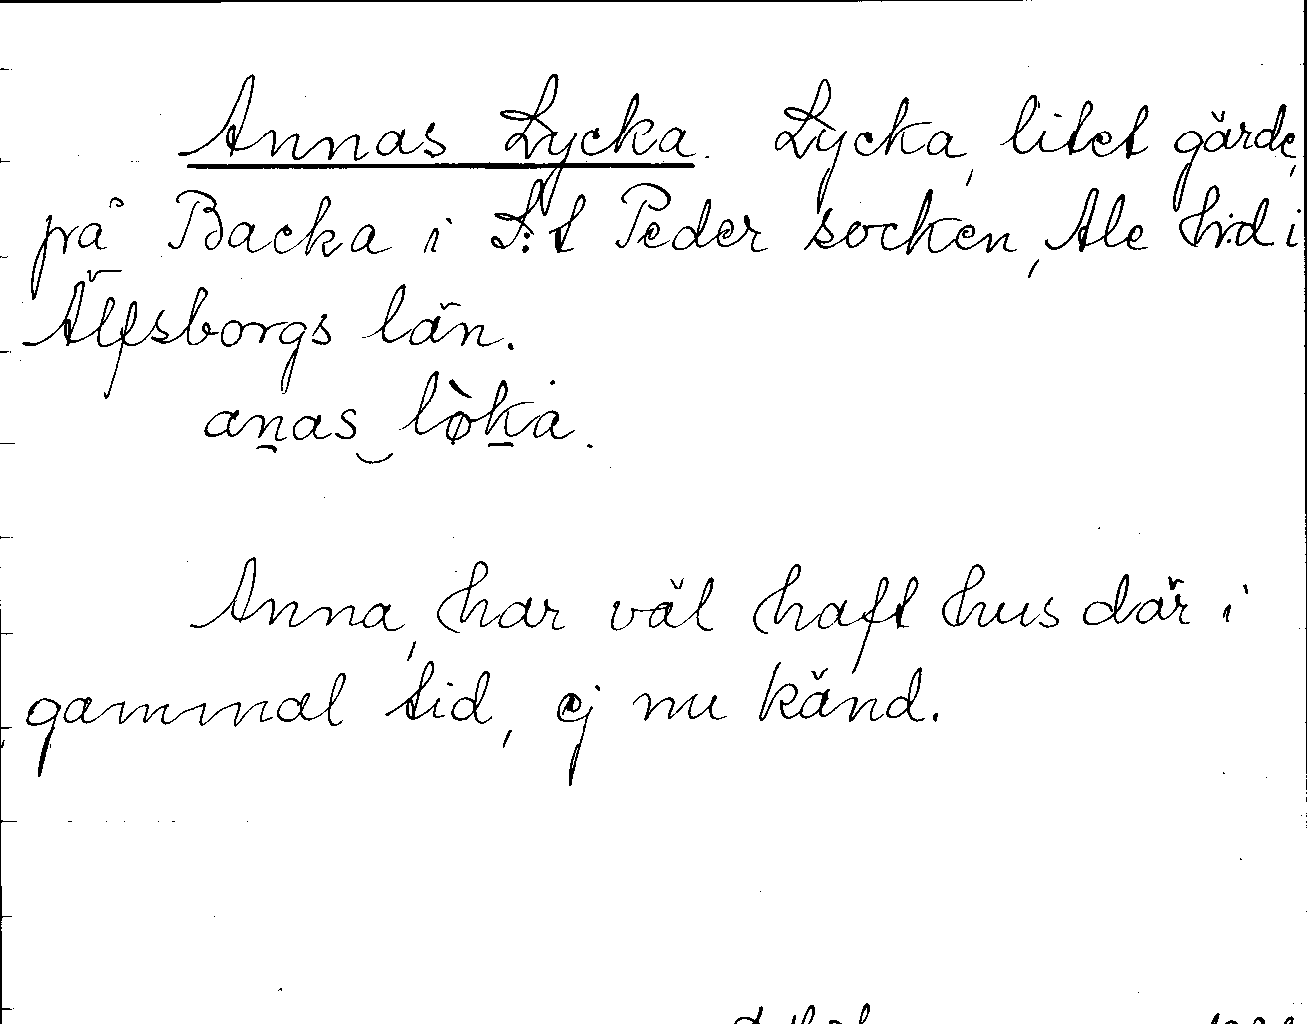 Annas Lycka. Lycka, litet gärde,
på Backa i S:t Peder socken, Ale hrd i
Älfsborgs län.
anas lø̀ka.
Anna, har väl haft hus där i
gammal tid, ej nu känd.